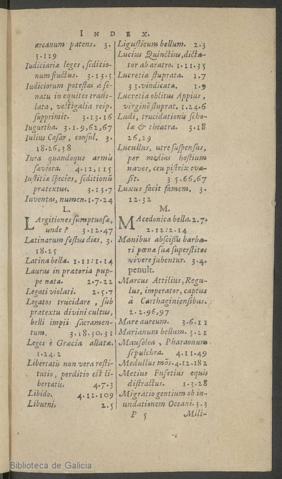 INDEX.
arcanum patens. 3.
3.129
Iudiciariæ leges, seditio-
num fructus. 3.13.5
Iudiciorum potestas à se-
natu in equites trans-
lata, vectigalia reip.
suppressit. 3.13.16
Iugurtha. 3.1.9,62,67
Iulius Cæsar, consul. 3.
18.26,38
Iura quandoque armis
sæviora. 4.12,115
Iustitia species, seditionis
prætextus. 3.15.7
Iuventas, numen. 1.7.24
L.
LArgitiones sumptuosæ,
unde? 3.12.47
Latinarum festus dies. 3.
18.25
Latina bella. 1.11/1.14
Laurus in prætoria pup-
pe nata. 7.2.22
Legati violati. 2.5.7
Legatos trucidare, sub
prætextu divini cultus,
belli impii sacramen-
tum. 3.18.30,31
Leges è Græcia allatæ.
1.24.2
Libertatis non vera resti-
tutio, perditio est li-
bertatis. 4.7.3
Libido. 4.12.109
Liburni. 2.5
Ligusticum bellum. 2.3
Lucius Quinctius, dicta-
tor ab aratro. 1.11.35
Lucretia stuprata. 1.7
33. vindicata. 1.9
Lucretia oblitus Appius,
virginē stuprat. 1.24.6
Ludi, trucidationis scho-
la & theatra. 3.18
26,29
Lucullus, utre suspensus,
per medias hostium
naves, ceu pistrix eva-
sit. 3.5.66,67
Luxus socit famem. 3.
12.32
M.
MAcedonica bella. 2.7.
2.12/2.14
Manibus abscissis barba-
ri pœna suâ superstites
vivere jubentur. 3.4.
penult.
Marcus Attilius, Regu-
lus, imperator, captus
à Carthaginiensibus.
2.2.96,97
Mare aureum. 3.6.11
Marianum bellum. 3.21
Mausolea, Pharaonum
sepulchra. 4.11.49
Medullus mōs. 4.12.182
Metius Fufetius equis
distractus. 1.3.28
Migratio gentium ob in-
undationem Oceani. 3.3
P 5 Mili-
Biblioteca de Galicia